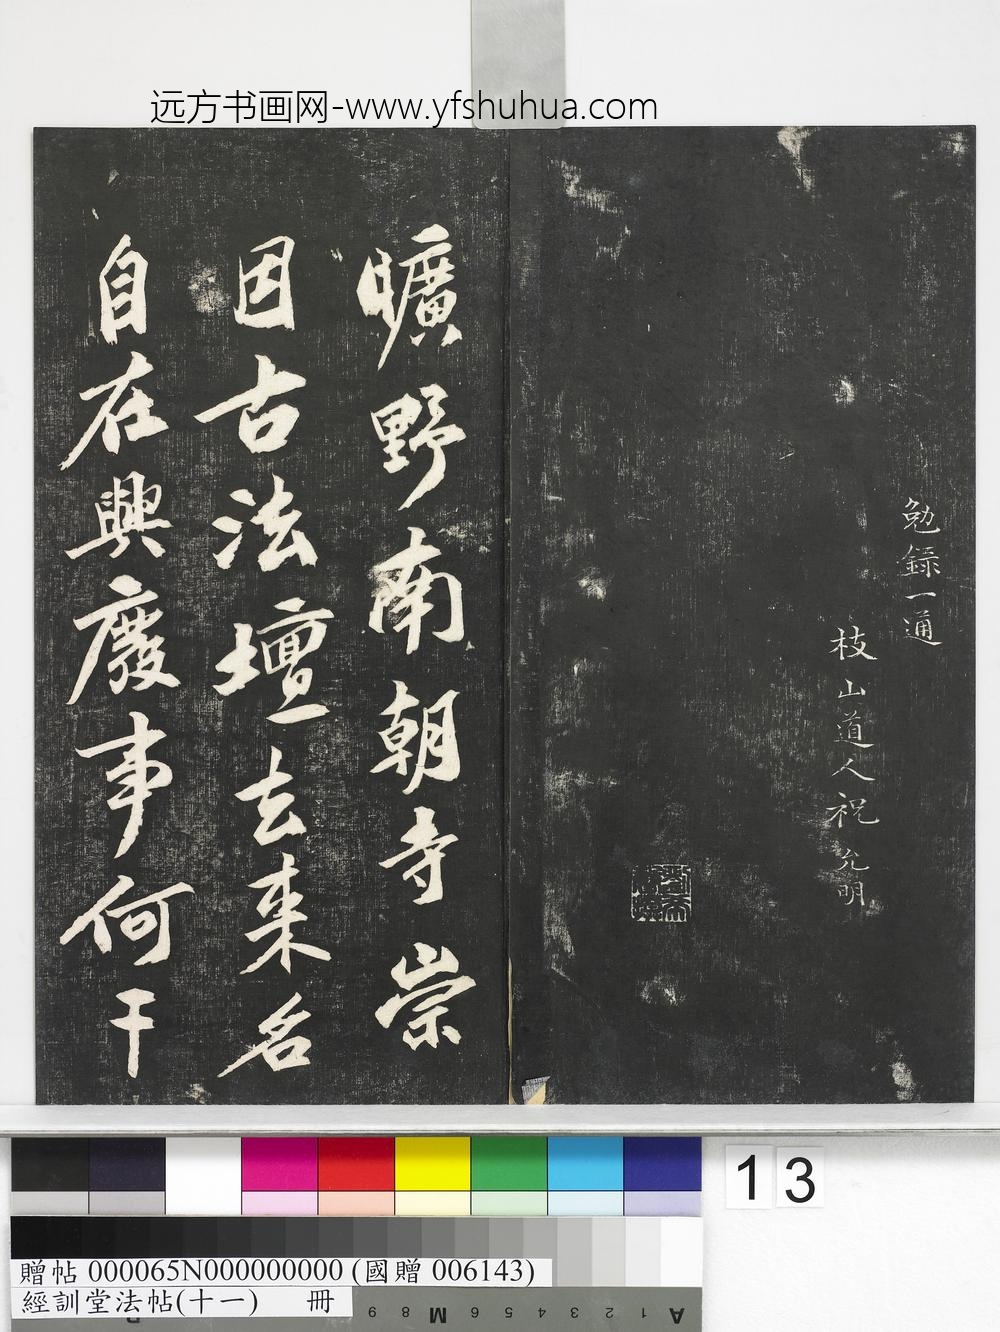 远方书画网-www.yfshuhua.com
勉錄一通
枝山道人祝允明
曠野南朝寺崇
因古法壇去来名
自在興廢事何干
13
贈帖 000065N000000000 (國贈 006143)
經訓堂法帖(十一) 冊
A 1 2 3 4 5 6 M 8 9